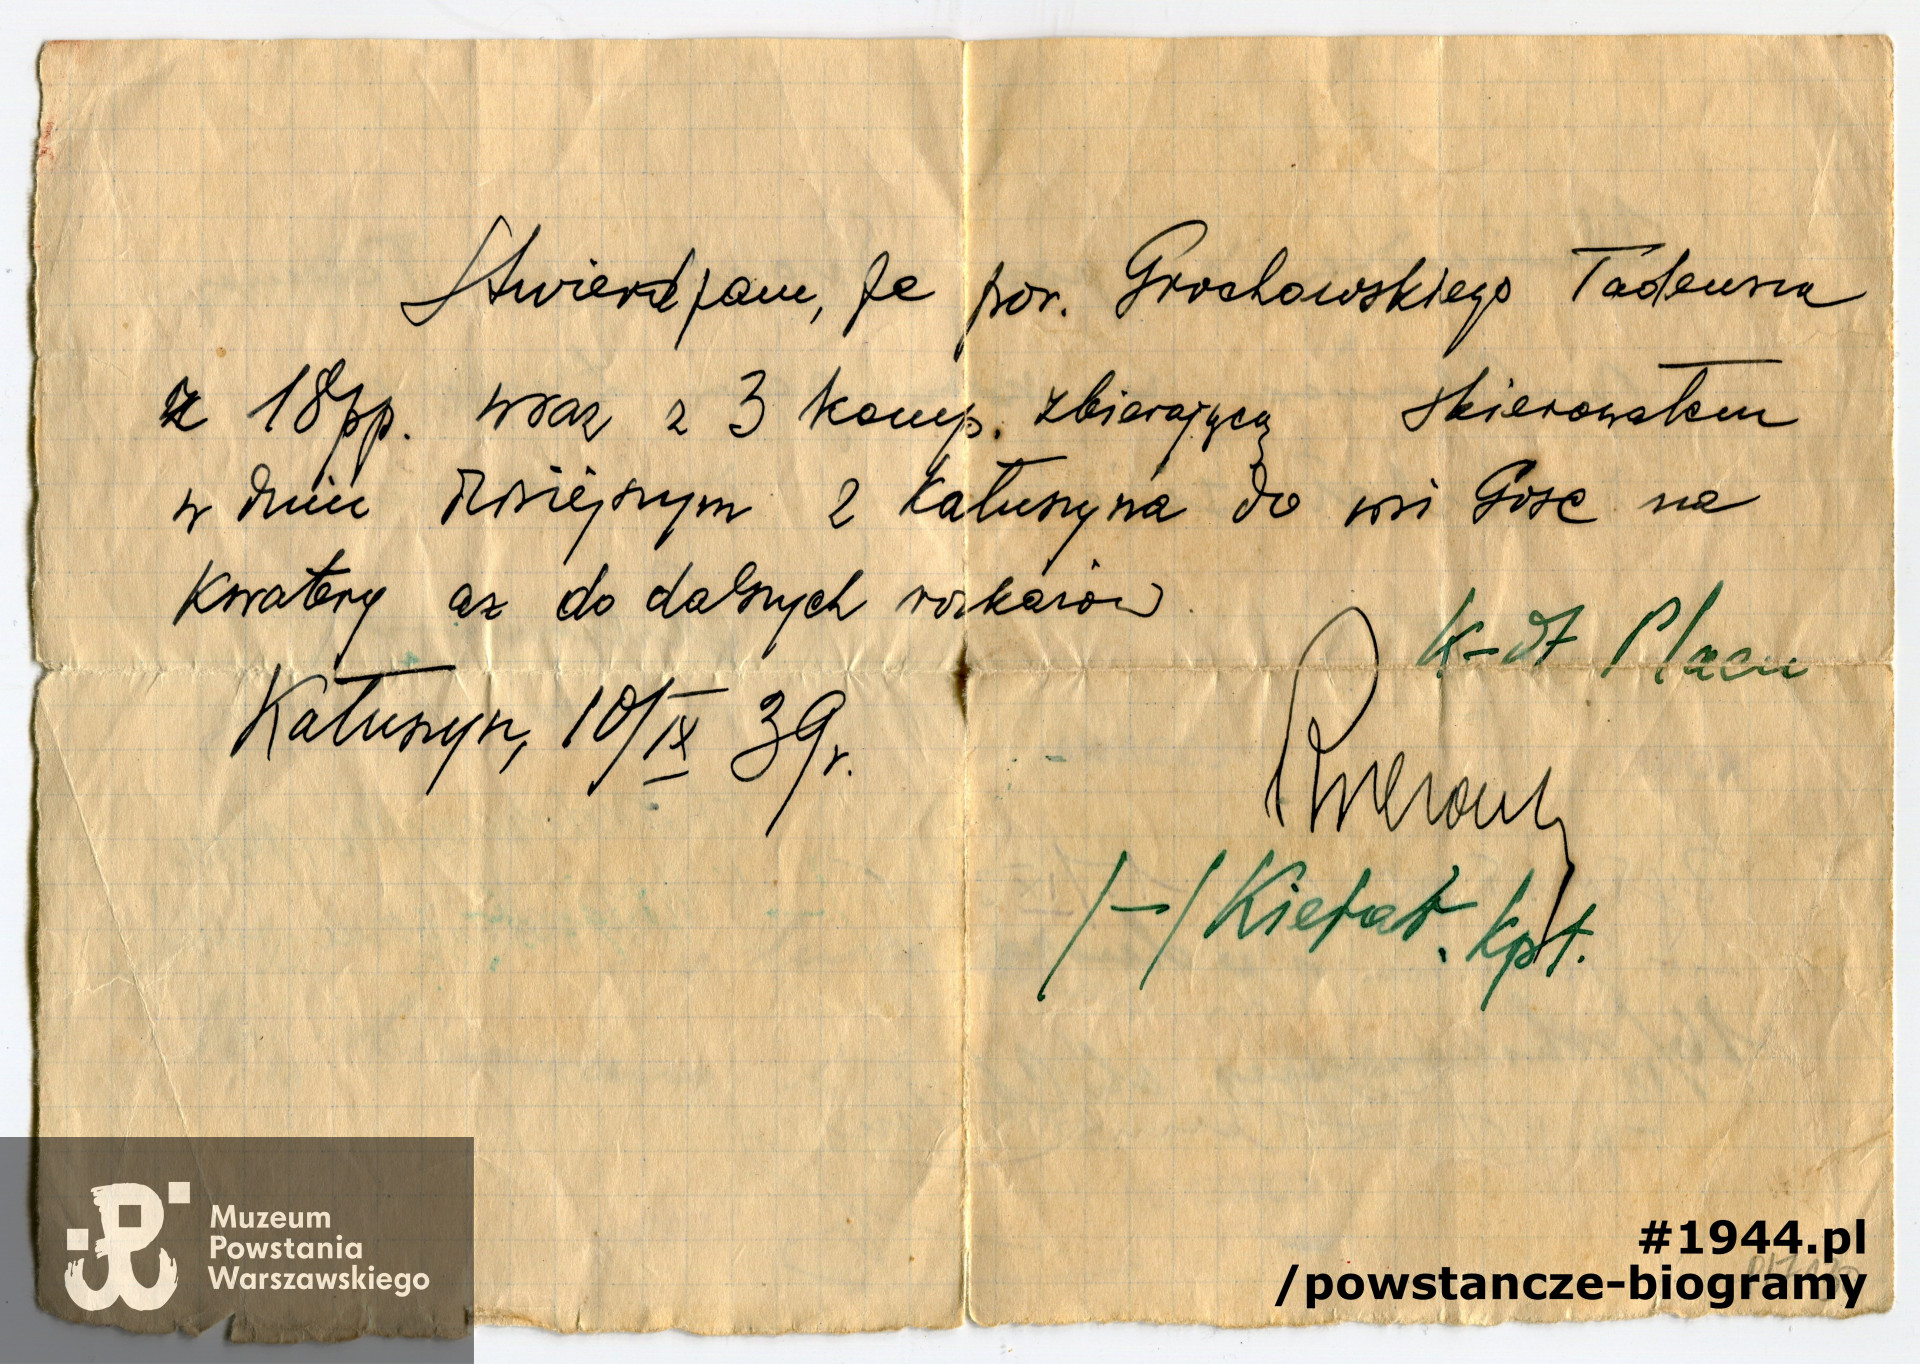 Stwierdzam, że por. Grochowskiego Tadeusza
z 18 pp. wraz z 3 komp. zbierającą skierowałem
w dniu dzisiejszym z Kałuszyna do wsi Gosc na
kwatery aż do dalszych rozkazów.
K-dt Placu
Kałuszyn, 10/IX 39 r.
/-/ kpt.
Muzeum
Powstania
Warszawskiego
#1944.pl
/powstancze-biogramy